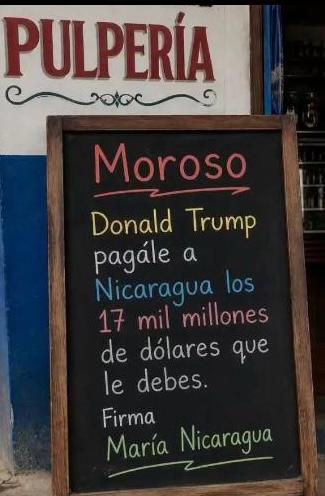 PULPERÍA
Moroso
Donald Trump
pagále a
Nicaragua los
17 mil millones
de dólares que
le debes.
Firma
María Nicaragua